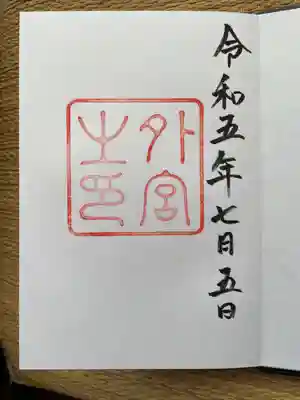 令和五年七月五日
外宮
之印